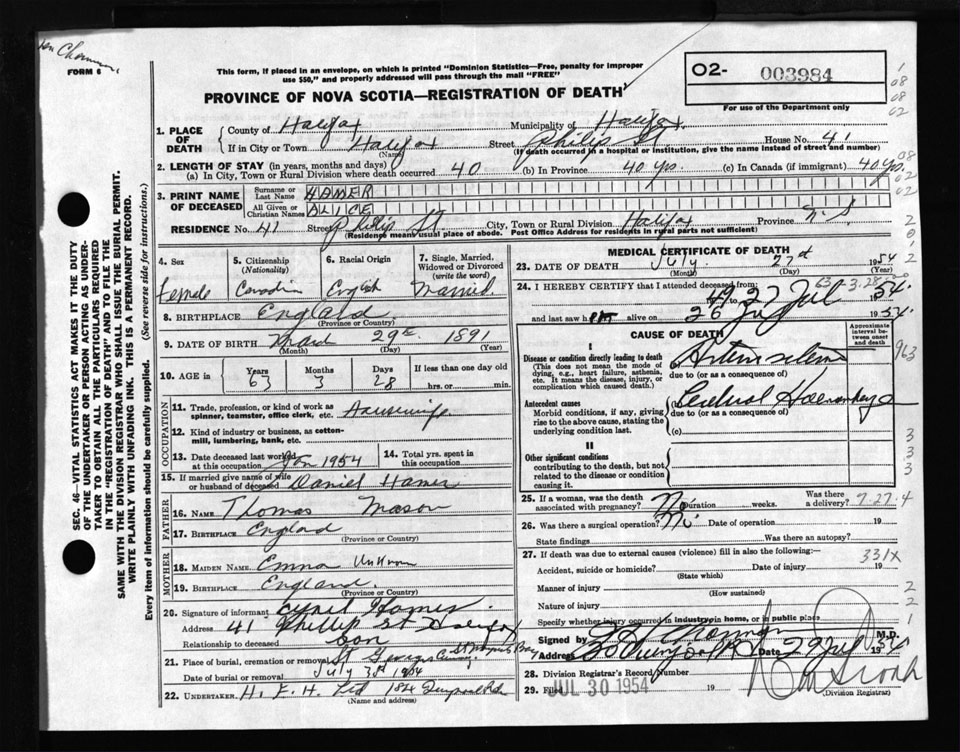 FORM 6
This form, if placed in an envelope, on which is printed "Dominion Statistics—Free, penalty for improper
use $50," and properly addressed will pass through the mail "FREE"
PROVINCE OF NOVA SCOTIA—REGISTRATION OF DEATH
O2- 003984
For use of the Department only
1. PLACE OF DEATH
County of Halifax Municipality of Halifax
If in City or Town Halifax Street Philip St House No. 41
(Name) (If death occurred in a hospital or institution, give the name instead of street and number)
2. LENGTH OF STAY (in years, months and days)
(a) In City, Town or Rural Division where death occurred 40 (b) In Province 40 yrs. (c) In Canada (if immigrant) 40 yrs.
3. PRINT NAME OF DECEASED
Surname or Last Name HAMER
All Given or Christian Names ALICE
RESIDENCE No. 41 Street Philip St City, Town or Rural Division Halifax Province N.S
(Residence means usual place of abode. Post Office Address for residents in rural parts not sufficient)
SEC. 46—VITAL STATISTICS ACT MAKES IT THE DUTY
OF THE UNDERTAKER OR PERSON ACTING AS UNDER-
TAKER TO OBTAIN ALL THE PARTICULARS REQUIRED
IN THE "REGISTRATION OF DEATH" AND TO FILE THE
SAME WITH THE DIVISION REGISTRAR WHO SHALL ISSUE THE BURIAL PERMIT.
WRITE PLAINLY WITH UNFADING INK. THIS IS A PERMANENT RECORD.
Every item of information should be carefully supplied. (See reverse side for instructions.)
4. Sex
Female
5. Citizenship
(Nationality)
Canadian
6. Racial Origin
English
7. Single, Married,
Widowed or Divorced
(write the word)
Married
8. BIRTHPLACE England
(Province or Country)
9. DATE OF BIRTH 29th 1891
(Month) (Day) (Year)
10. AGE in Years Months Days If less than one day
63 3 28 hrs. or min.
OCCUPATION
11. Trade, profession, or kind of work as
spinner, teamster, office clerk, etc. Housewife
12. Kind of industry or business, as cotton-
mill, lumbering, bank, etc.
13. Date deceased last worked
at this occupation 1954
14. Total yrs. spent in
this occupation
15. If married give name of wife
or husband of deceased Daniel Hamer
FATHER
16. NAME Thomas Mason
17. BIRTHPLACE England
(Province or Country)
MOTHER
18. MAIDEN NAME Emma Unknown
19. BIRTHPLACE England
(Province or Country)
20. Signature of informant Hamer
Address 41 Phillip St Halifax
Relationship to deceased Son
21. Place of burial, cremation or removal St Georges
Date of burial or removal July 1954
22. UNDERTAKER H. Ltd
(Name and address)
MEDICAL CERTIFICATE OF DEATH
23. DATE OF DEATH July 27th 1954
(Month) (Day) (Year)
24. I HEREBY CERTIFY that I attended deceased from:
27 Jul 54
and last saw h er alive on 26 July 1954
CAUSE OF DEATH
Approximate
interval be-
tween onset
and death
I
Disease or condition directly leading to death
(This does not mean the mode of
dying, e.g., heart failure, asthenia,
etc. It means the disease, injury, or
complication which caused death.)
due to (or as a consequence of)
Antecedent causes
Morbid conditions, if any, giving
rise to the above cause, stating the
underlying condition last.
Cerebral Haemorrhage
due to (or as a consequence of)
(c)
II
Other significant conditions
contributing to the death, but not
related to the disease or condition
causing it.
25. If a woman, was the death
associated with pregnancy? No Duration weeks. Was there a delivery?
7-27-4
26. Was there surgical operation? Date of operation 19
State findings Was there an autopsy?
27. If death was due to external causes (violence) fill in also the following:—
331X
Accident, suicide or homicide? Date of injury 19
(State which)
Manner of injury
(How sustained)
Nature of injury
Specify whether injury occurred in industry, in home, or in public place
Signed by M.D.
Address Date 29 Jul 1954
28. Division Registrar's Record Number
29. Filed JUL 30 1954 19
(Division Registrar)